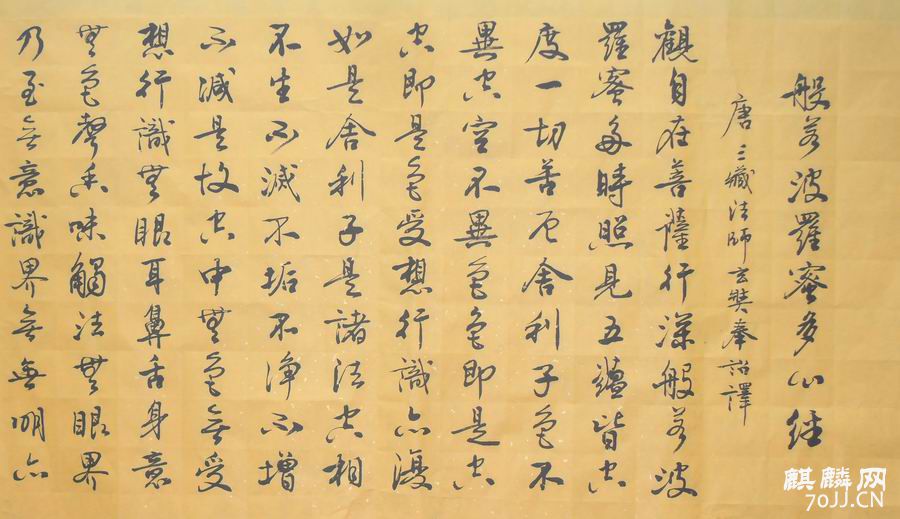 般若波羅蜜多心經
唐三藏法師玄奘奉詔譯
觀自在菩薩行深般若波
羅蜜多時照見五蘊皆空
度一切苦厄舍利子色不
異空空不異色色即是空
空即是色受想行識亦復
如是舍利子是諸法空相
不生不滅不垢不淨不增
不減是故空中無色無受
想行識無眼耳鼻舌身意
無色聲香味觸法無眼界
乃至無意識界無無明亦
麒麟网
70JJ.CN